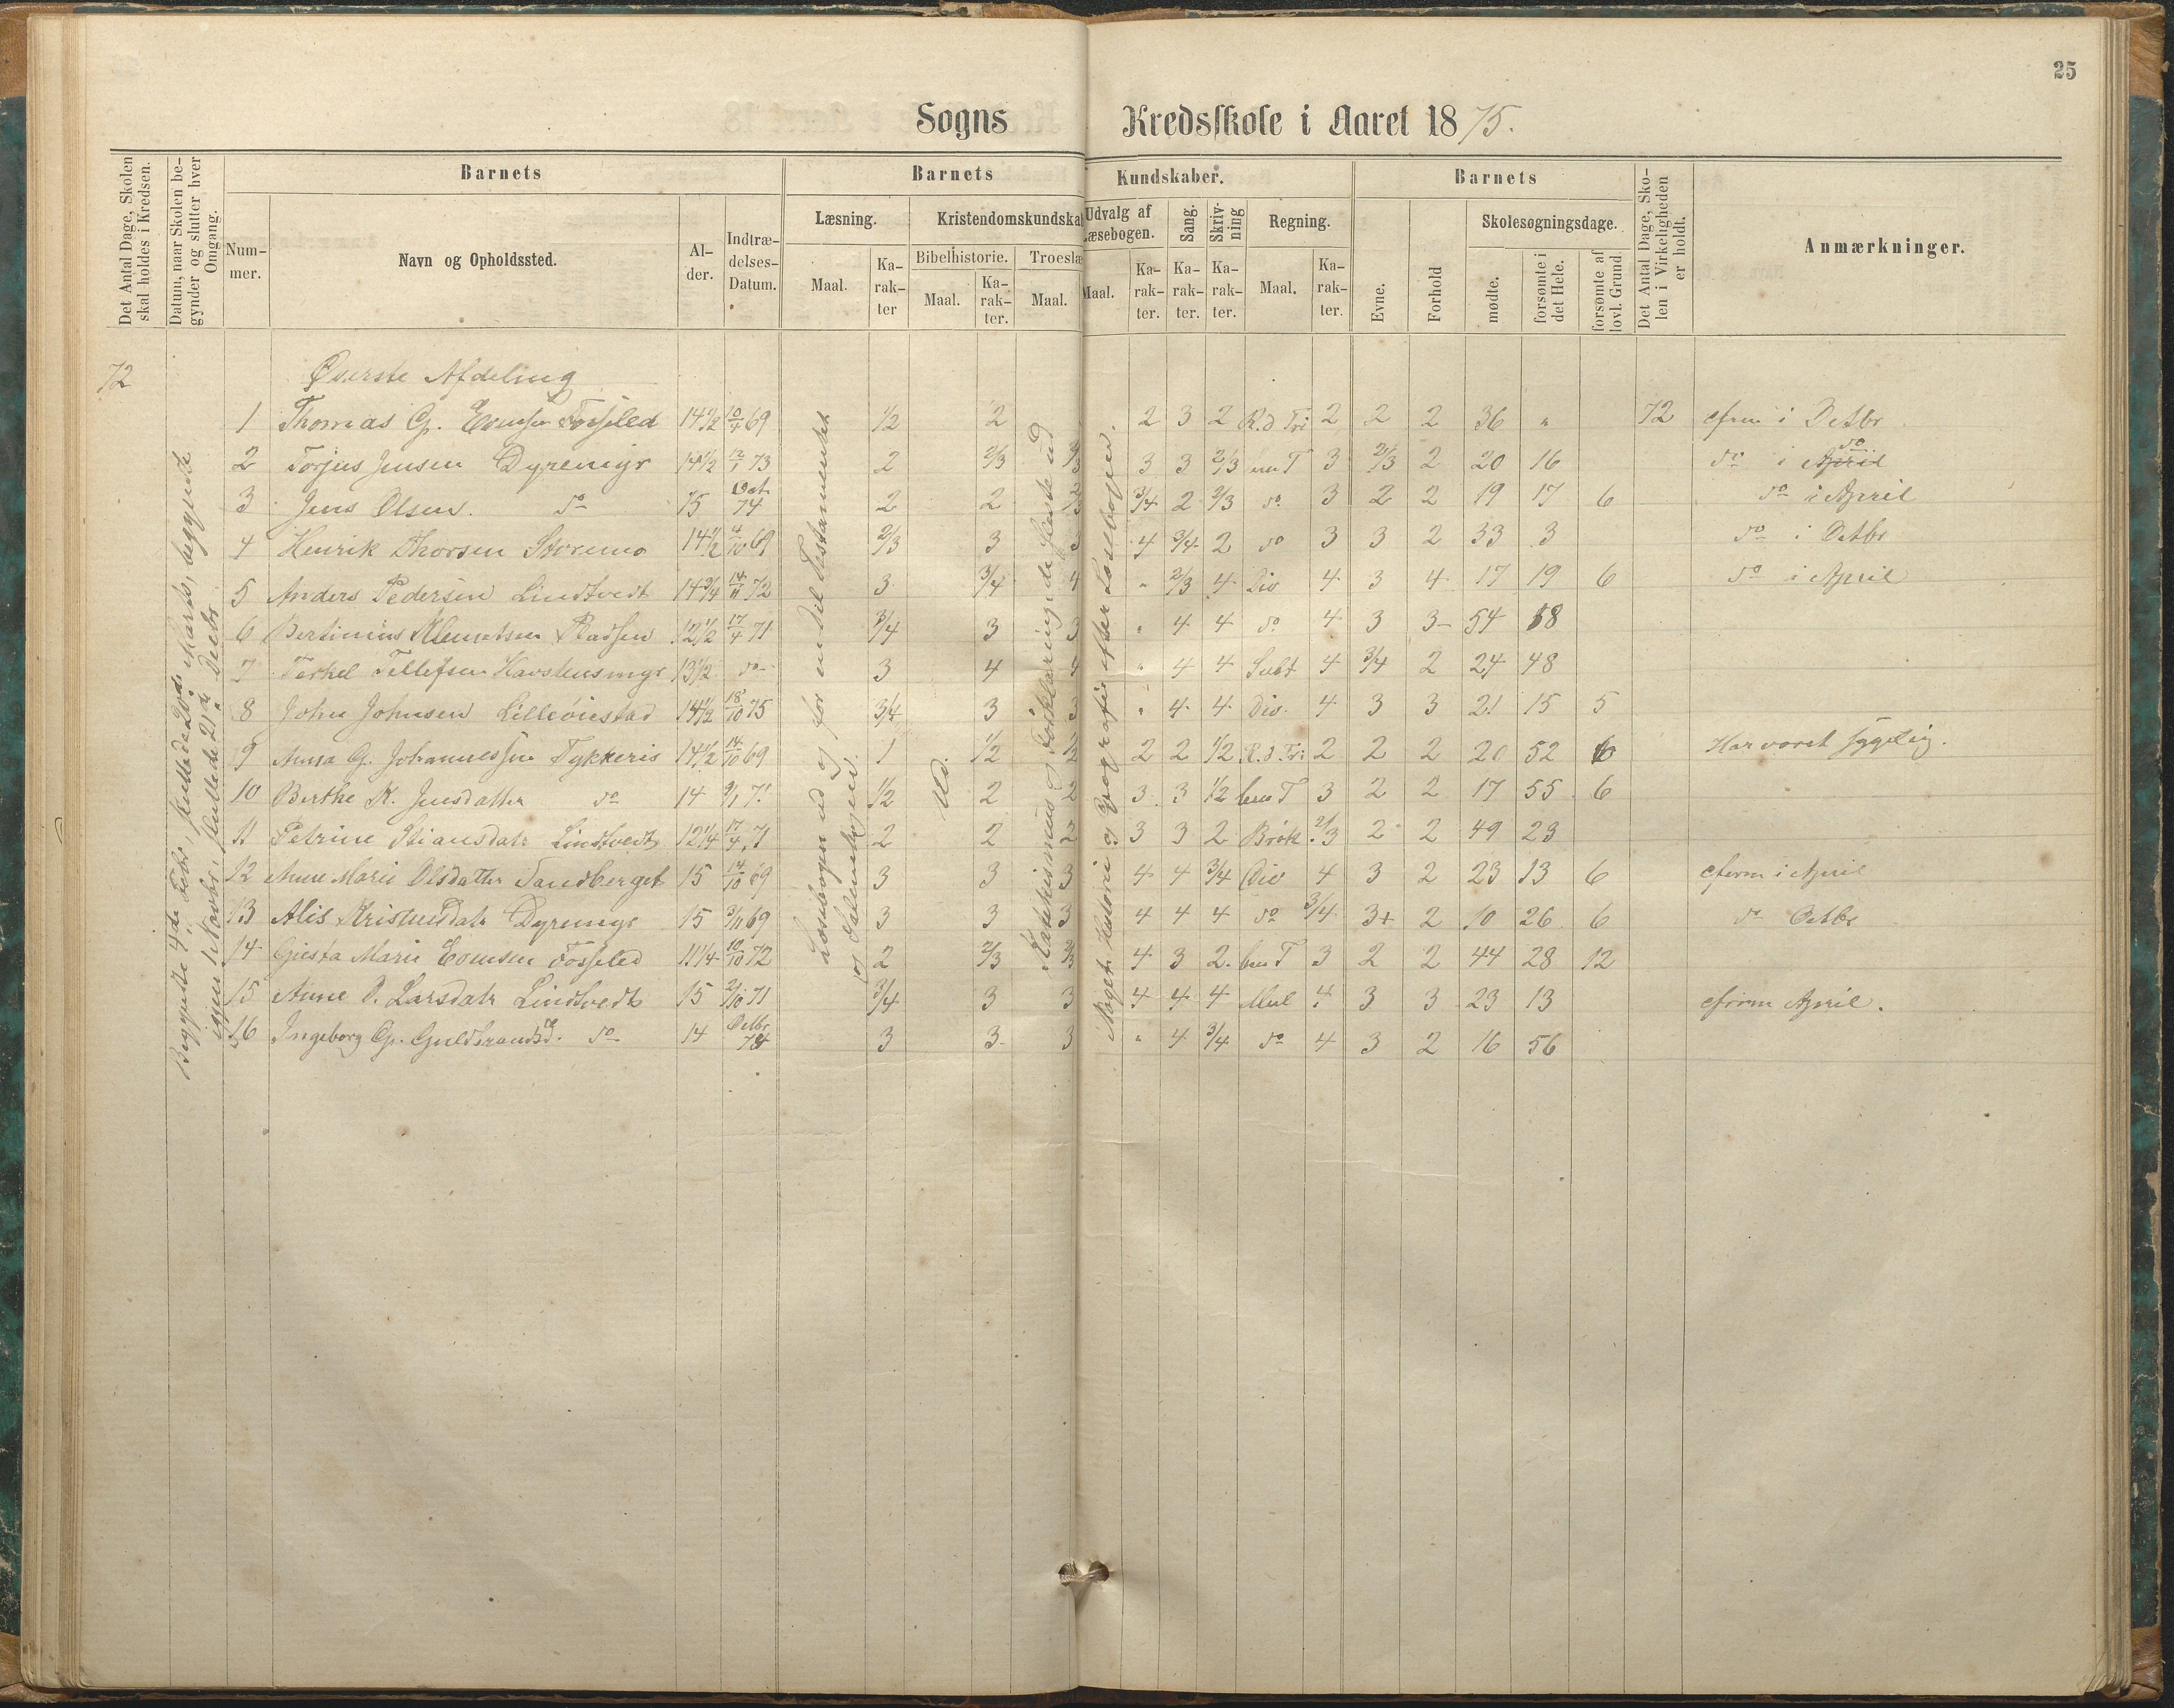 25
Sogns Kredsskole i Aaret 1875.
Det Antal Dage, Skolen skal holdes i Kredsen.
Datum, naar Skolen begynder og slutter hver Omgang.
Barnets
Barnets
Kundskaber.
Barnets
Det Antal Dage, Skolen i Virkeligheden er holdt.
Anmærkninger.
Nummer.
Navn og Opholdssted.
Alder.
Indtrædelses-Datum.
Læsning.
Kristendomskundskab
Udvalg af Læsebogen.
Sang.
Skrivning
Regning.
Skolesøgningsdage.
Maal.
Karakter
Bibelhistorie.
Troeslæ
Maal.
Karakter.
Maal.
Maal.
Karakter.
Karakter.
Karakter.
Maal.
Karakter.
Evne.
Forhold
mødte.
forsømte i det Hele.
forsømte af lovl. Grund.
72
Øverste Afdeling
1 Thomas G. Evensen Fosseled 14 1/2 10/4 69 1/2 2 2 3 2 R. d Tri 2 2 2 36 " 72 cfrm i Octbr
2 Torjus Jensen Dyremyr 14 1/2 12/1 73 2 2/3 2/3 3 3 2/3 ben T 3 2/3 2 20 16 do i April do
3 Jens Olsen do 15 Oct 74 2 2 2/3 3/4 2 2/3 do 3 2 2 19 17 6 do i April
4 Henrik Thorsen Storemo 14 1/2 4/10 69 2/3 3 3 4 3/4 2 do 3 3 2 33 3 do i Octbr
5 Anders Pedersen Lindtvedt 14 3/4 14/11 72 3 3/4 4 " 2/3 4 Div 4 3 4 17 19 6 do i April
6 Bertinius Klemetsen 12 1/2 17/4 71 3/4 3 3 " 4 4 do 4 3 3 54 18
7 Terkel Tellefsen Havstensmyr 13 1/2 do 3 4 4 " 4 4 Subt 4 3/4 2 24 48
8 John Johnsen Lilleøiestad 14 1/2 18/10 75 3/4 3 3 " 4 4 Div. 4 3 3 21 15 5
9 Anna G. Johannessen Tykkeris 14 1/2 14/10 69 1 1/2 1/2 2 2 1/2 R. d. Tri 2 2 2 20 52 6 Har været sygelig.
10 Berthe K. Jensdatter do 14 9/1 71 1/2 2 2 3 3 1/2 ben T 3 2 2 17 55 6
11 Petrine Stiansdatr Lindtvedt 12 1/4 17/4 71 2 2 2 3 3 2 Brøk 2/3 2 2 49 23
12 Anne Marie Olsdatter Sandberget 15 14/10 69 3 3 3 4 4 3/4 Div 4 3 2 23 13 6 cfirm i April
13 Alis Kristensdatr Dyremyr 15 3/11 69 3 3 3 4 4 4 do 3/4 3+ 2 10 26 6 do Octbr
14 Marie Evensen Fosseled 11 1/4 10/10 72 2 2/3 2/3 4 3 2 ben T 3 2 2 44 28 12
15 Anne O. Larsdatr Lindtvedt 15 21/10 71 3/4 3 3 4 4 4 Mul 4 3 3 23 13 cfirm April.
16 Ingeborg G. Guldbrandsd. do 14 Octbr 74 3 3 3 " 4 3/4 do 4 3 2 16 56
Begyndte 4de Febr., sluttede 20de Marts, begyndte
igjen Novbr, sluttede 21de Decbr
Læsebogen ud og for en Del Testamentet
og Salmebogen.
Ud.
Katekismus og Forklaringen de fleste ud
Noget Historie og Geografi efter Læsebogen.